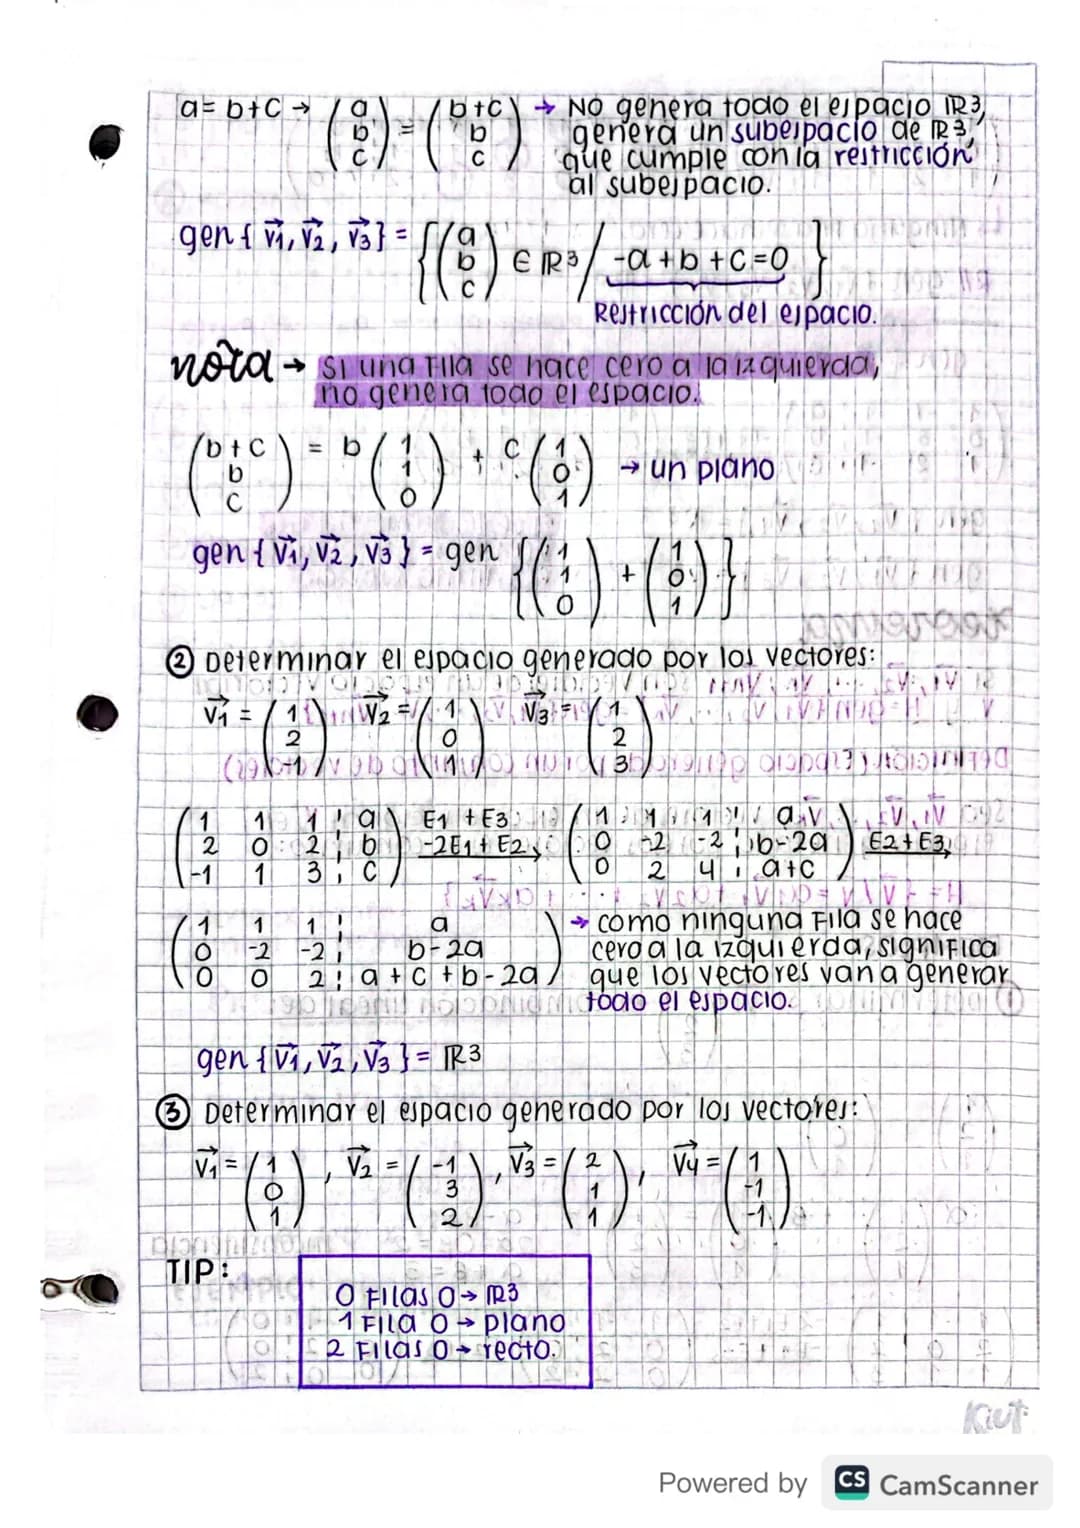 a = b+c → (a b c) = (b+c b c) → No genera todo el espacio ℝ3,
genera un subespacio de ℝ3,
que cumple con la restricción
al subespacio.
gen { v⃗1, v⃗2, v⃗3 } = { (a b c) ∈ ℝ3 / -a + b + c = 0 }
Restricción del espacio.
nota → Si una Fila se hace cero a la izquierda,
no genera todo el espacio.
(b+c b c) = b (1 1 0) + c (1 0 1) → un plano
gen { v⃗1, v⃗2, v⃗3 } = gen { (1 1 0) + (1 0 1) }
② Determinar el espacio generado por los vectores:
v⃗1 = (1 2 -1) v⃗2 = (1 0 1) v⃗3 = (1 2 3)
(1 1 1 ¦ a
2 0 2 ¦ b
-1 1 3 ¦ c) E1 + E3 -2E1 + E2 → (1 1 1 ¦ a
0 -2 -2 ¦ b-2a
0 2 4 ¦ a+c) E2+E3 →
(1 1 1 ¦ a
0 -2 -2 ¦ b-2a
0 0 2 ¦ a+c+b-2a) → como ninguna Fila se hace
cero a la izquierda, significa
que los vectores van a generar
todo el espacio.
gen { v⃗1, v⃗2, v⃗3 } = ℝ3
③ Determinar el espacio generado por los vectores:
v⃗1 = (1 0 1), v⃗2 = (-1 3 2), v⃗3 = (2 1 1), v⃗4 = (1 -1 -1)
TIP:
0 Filas 0 → ℝ3
1 Fila 0 → plano
2 Filas 0 → recto.
Powered by CS CamScanner